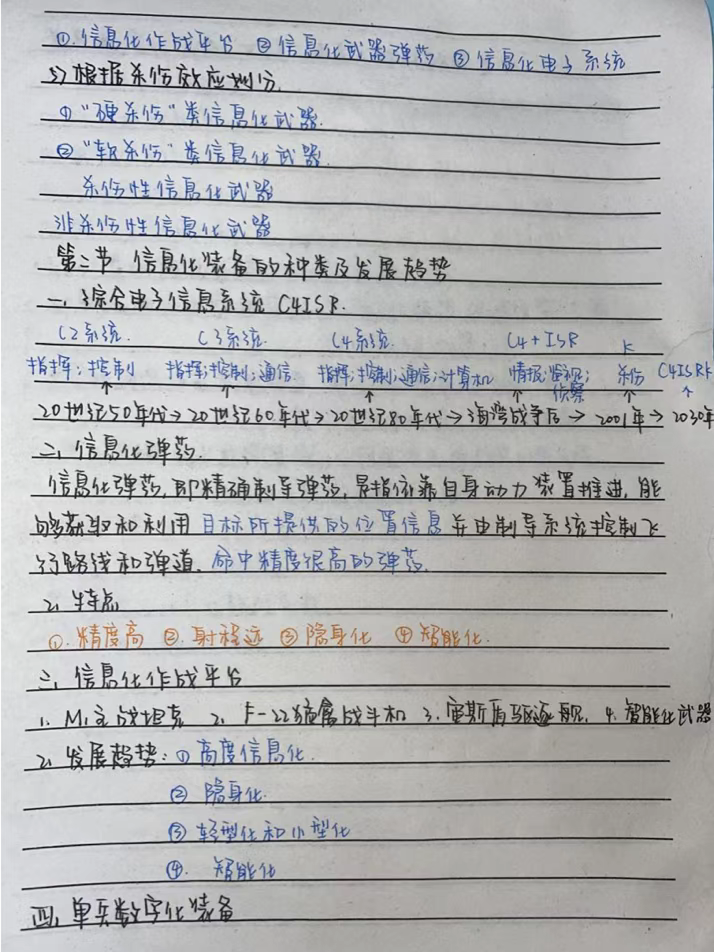 ①.信息化作战平台 ②信息化武器弹药 ③信息化电子系统
5)根据杀伤效应划分.
①"硬杀伤"类信息化武器.
②"软杀伤"类信息化武器.
杀伤性信息化武器
非杀伤性信息化武器
第二节.信息化装备的种类及发展趋势
一、综合电子信息系统 C4ISR.
C2系统. C3系统. C4系统. C4+ISR K
指挥;控制 指挥;控制;通信 指挥;控制;通信;计算机 情报;监视;侦察 杀伤 C4ISRK
↑ ↑ ↑ ↑ ↑ ↑
20世纪50年代→20世纪60年代→20世纪80年代→海湾战争后→2001年→2030年
二、信息化弹药.
信息化弹药,即精确制导弹药,是指依靠自身动力装置推进,能
够获取和利用目标所提供的位置信息并由制导系统控制飞
行路线和弹道.命中精度很高的弹药.
2.特点
①.精度高 ②.射程远 ③隐身化 ④智能化.
三、信息化作战平台
1.M1主战坦克 2.F-22猛禽战斗机 3.宙斯盾驱逐舰. 4.智能化武器
2.发展趋势:①高度信息化.
② 隐身化.
③ 轻型化和小型化
④. 智能化
四、单兵数字化装备